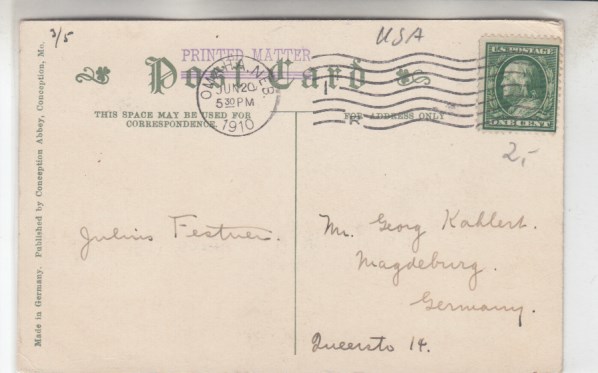 3/5
USA
PRINTED MATTER
Post Card
OMAHA, NEB.
JUN 20
5 30 PM
1910
U.S. POSTAGE
ONE CENT
2,-
THIS SPACE MAY BE USED FOR
CORRESPONDENCE.
FOR ADDRESS ONLY
Made in Germany. Published by Conception Abbey, Conception, Mo.
Julius Festner.
Mr. Georg Kahlert.
Magdeburg.
Germany.
14.